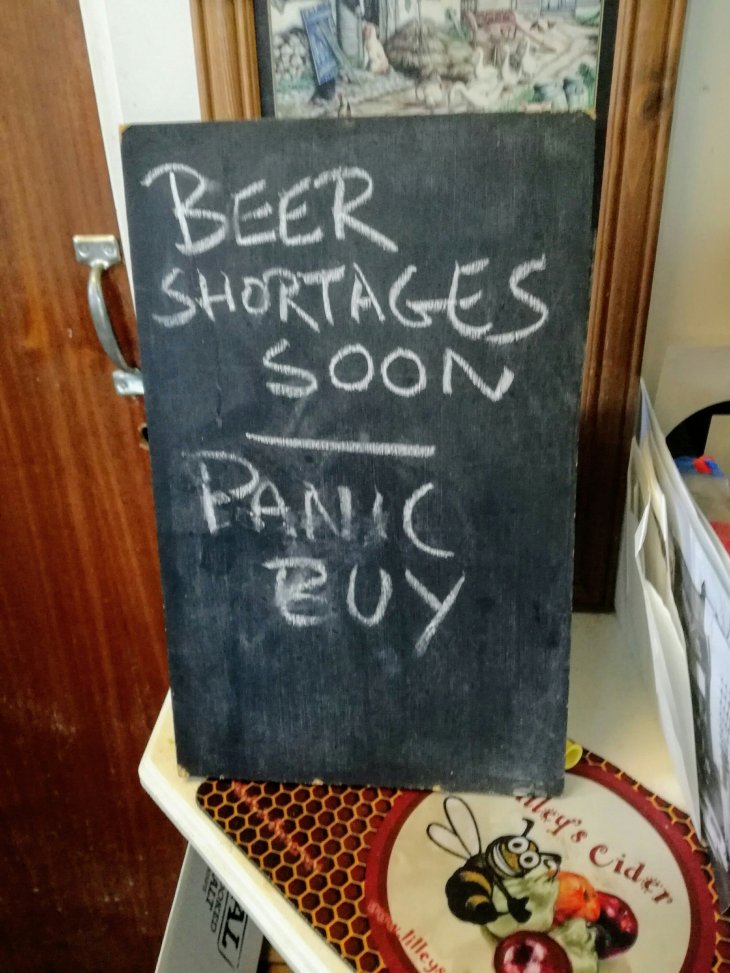 BEER
SHORTAGES
SOON
PANIC
BUY
Lilley's Cider
www.lilleys